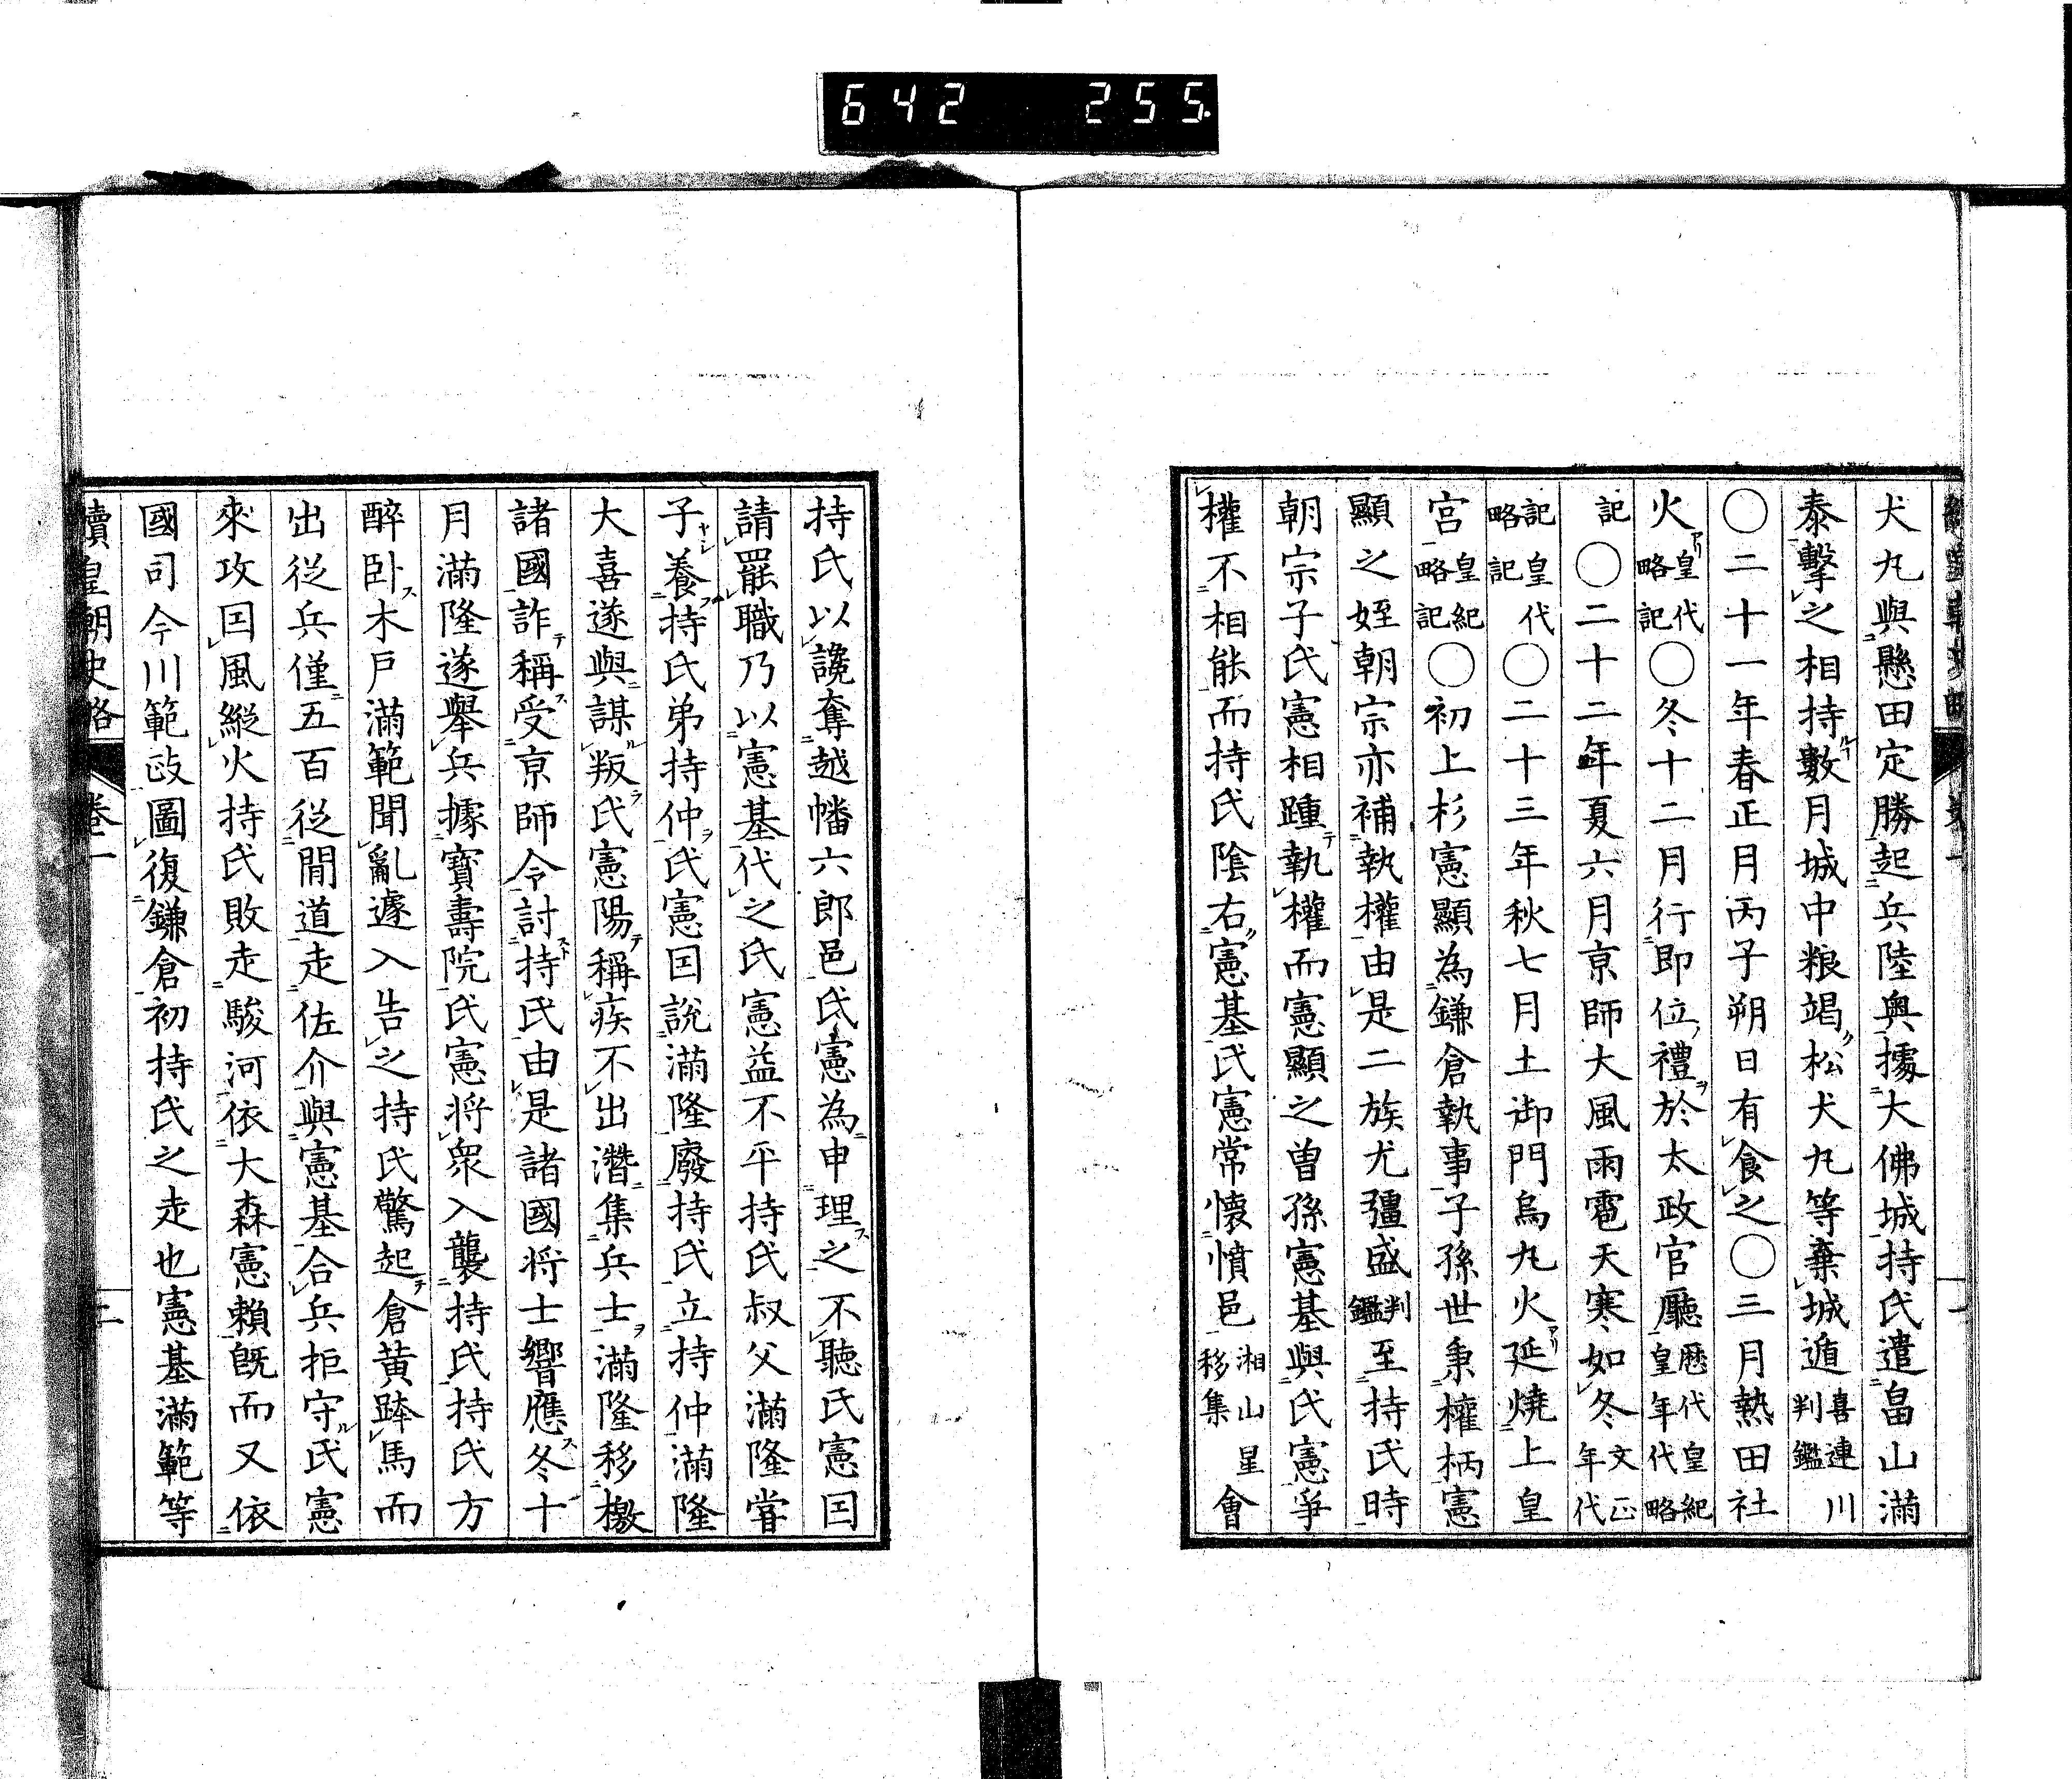 642 255.
犬丸與懸田定勝起兵陸奥據大佛城持氏遣畠山滿
泰擊之相持數月城中粮竭松犬丸等棄城遁喜連川判鑑
〇二十一年春正月丙子朔日有食之〇三月熱田社
火皇代略記〇冬十二月行即位禮於太政官廳歴代皇紀皇年代略
記〇二十二年夏六月京師大風雨雹天寒如冬文正年代
記皇代略記〇二十三年秋七月土御門烏丸火延燒上皇
宮皇紀略記〇初上杉憲顯為鎌倉執事子孫世秉權柄憲
顯之姪朝宗亦補執權由是二族尤彊盛判鑑至持氏時
朝宗子氏憲相踵執權而憲顯之曽孫憲基與氏憲爭
權不相能而持氏陰右憲基氏憲常懷憤邑湘山星移集會
持氏以讒奪越幡六郎邑氏憲為申理之不聽氏憲因
請罷職乃以憲基代之氏憲益不平持氏叔父滿隆嘗
子養持氏弟持仲氏憲因說滿隆廢持氏立持仲滿隆
大喜遂與謀叛氏憲陽稱疾不出潛集兵士滿隆移檄
諸國詐稱受京師令討持氏由是諸國将士響應冬十
月滿隆遂舉兵據寶壽院氏憲将衆入襲持氏持氏方
醉卧木戸滿範聞亂遽入告之持氏驚起倉黄跨馬而
出從兵僅五百從間道走佐介與憲基合兵拒守氏憲
來攻因風縱火持氏敗走駿河依大森憲賴既而又依
國司今川範政圖復鎌倉初持氏之走也憲基滿範等
續皇朝史略 卷一 二